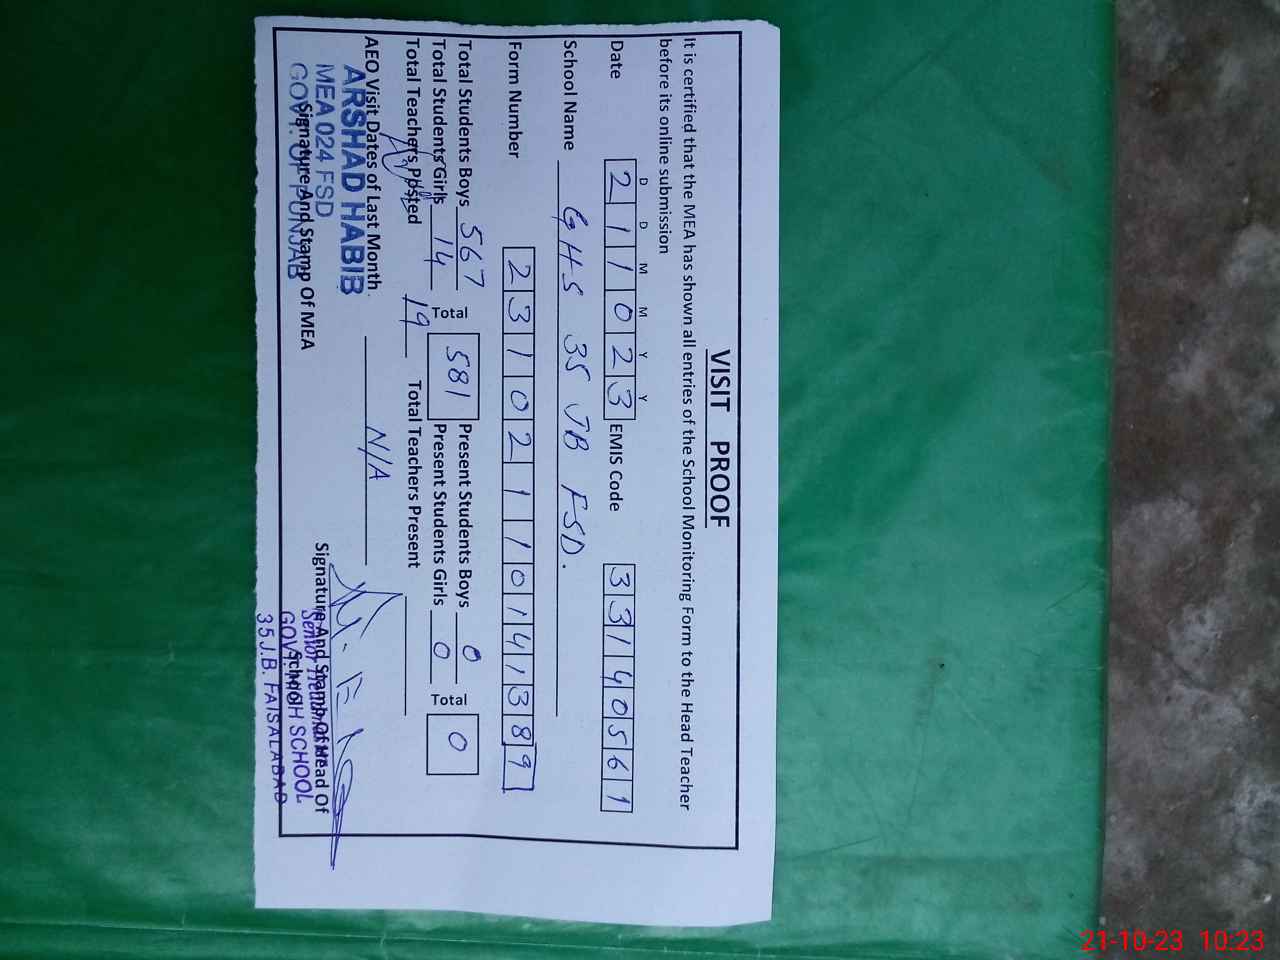 VISIT PROOF
It is certified that the MEA has shown all entries of the School Monitoring Form to the Head Teacher
before its online submission
D D M M Y Y
Date 2 1 1 0 2 3 EMIS Code 3 3 1 4 0 5 6 1
School Name GHS 35 JB FSD.
Form Number 2 3 1 0 2 1 1 0 1 4 1 3 8 9
Total Students Boys 567 Present Students Boys 0
Total 581 Total 0
Total Students Girls 14 Present Students Girls 0
Total Teachers Posted 19 Total Teachers Present
AEO Visit Dates of Last Month N/A
ARSHAD HABIB
MEA 024 FSD
GOVT. OF PUNJAB
Signature And Stamp Of MEA
Signature And Stamp Of Head Of
School
Senior
GOVT. HIGH SCHOOL
35 J.B. FAISALABAD
21-10-23 10:23